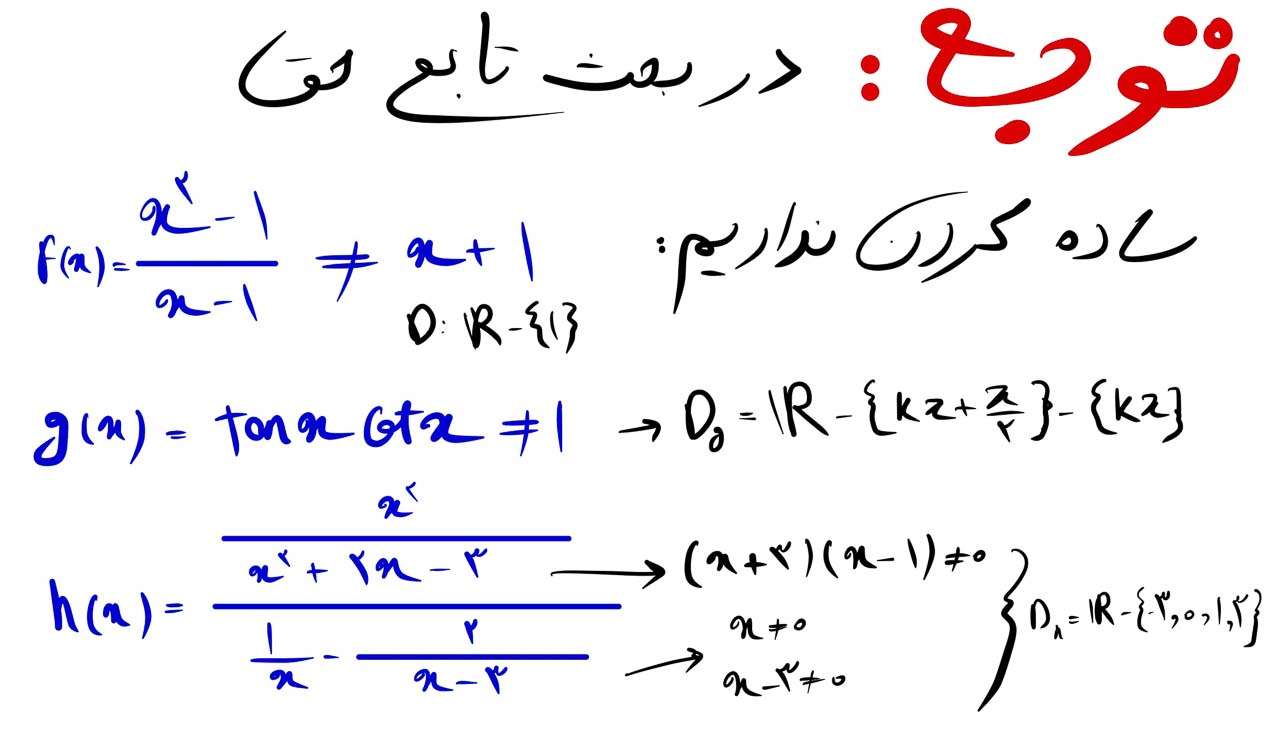 توجه: در بحث تابع حق
ساده کردن نداریم:
f(x) = (x^۲ - 1)/(x - 1) ≠ x + 1
D: ℝ - {1}
g(x) = tan x Cot x ≠ 1 → D_g = ℝ - {kπ + π/۲} - {kπ}
h(x) = (x^۲/(x^۲ + ۲x - ۳))/(1/x - ۲/(x - ۳))
→ (x + ۳)(x - 1) ≠ 0
→ x ≠ 0
x - ۳ ≠ 0
} D_h = ℝ - {-۳, 0, 1, ۳}